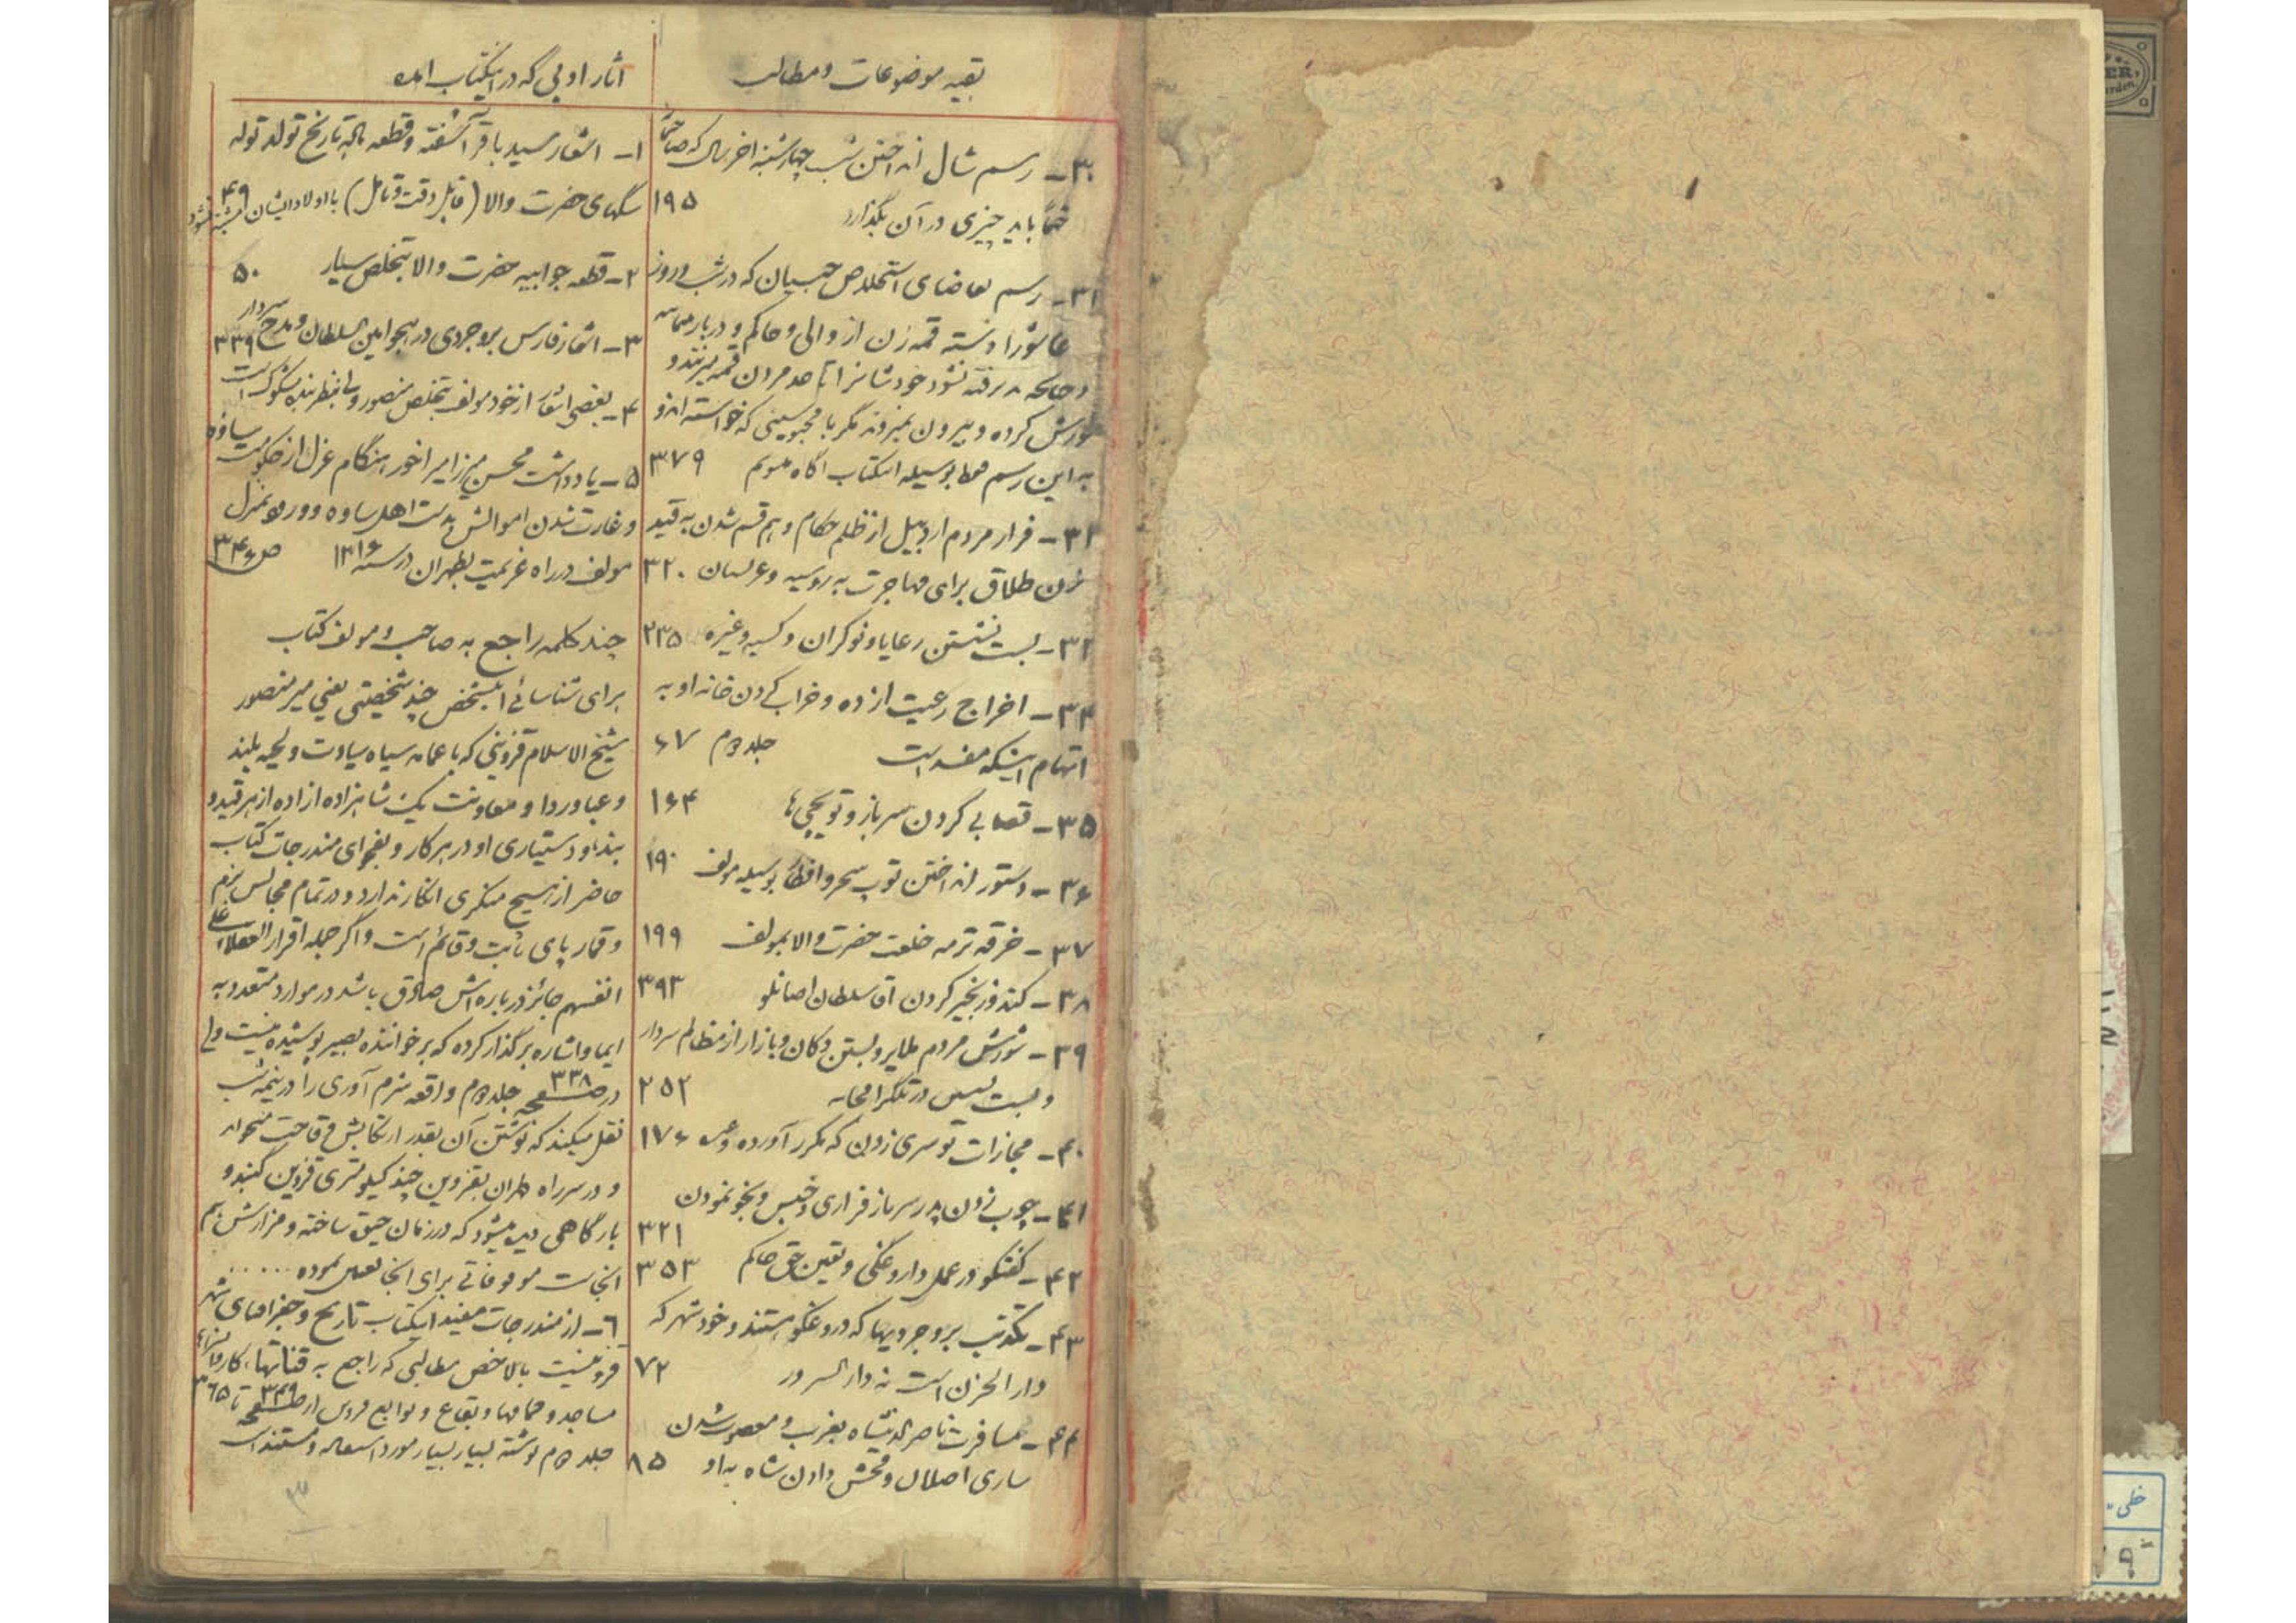 بقیه موضوعات و مطالب
۳۰- رسم شال انداختن شب چهارشنبه اخر سال که صاحبخانه
حتماً باید چیزی در آن بگذارد ۱۹۵
۳۱- رسم تقاضای استخلاص حبسیان که در شب و روز
عاشورا دسته قمه زن از والی و حاکم و دربار
و چنانچه پذیرفته نشود خودشانرا تا حد مردن قمه میزنند و
شورش کرده و بیرون نمیروند مگر با محبوسینی که خواسته اند و
به این رسم فقط بوسیله اینکتاب اگاه میشویم ۳۷۹
۳۲- فرار مردم اردبیل از ظلم حکام و هم قسم شدن به قید
زن طلاق برای مهاجرت به روسیه و عربستان ۳۲۰
۳۳- بست نشستن رعایا و نوکران و کسبه و غیره ۲۳۵
۳۴- اخراج رعیت از ده و خراب کردن خانه او به
اتهام اینکه مفسد است جلد دوم ۶۷
۳۵- قصابی کردن سرباز و توپچی ها ۱۶۴
۳۶- دستور انداختن توپ سحر و افطار بوسیله مولف ۱۹۰
۳۷- خرقه ترمه خلعت حضرت والا بمولف ۱۹۹
۳۸- کند و زنجیر کردن آقا سلطان اصانلو ۳۹۳
۳۹- شورش مردم ملایر و بستن دکان و بازار از مظالم سردار
و بست نشینی در تلگرافخانه ۲۵۲
۴۰- مجازات توسری زدن که مکرر آورده ۱۷۶
۴۱- چوب زدن پدر سرباز فراری و حبس و بخو نمودن
۳۲۱
۴۲- گفتگو در عمل داروغگی و تعیین حق حاکم ۳۵۳
۴۳- تکذیب بروجردیها که دروغگو هستند و خود شهر که
دار الحزن است نه دار السرور ۷۲
۴۴- مسافرت ناصرالدینشاه بغرب و مغضوب شدن
ساری اصلان و فحش دادن شاه به او ۸۵
آثار ادبی که در اینکتاب آمده
۱- اشعار سید باقر آشفته و قطعه ماده تاریخ تولد توله
سگهای حضرت والا (قابل دقت و تامل) با اولاد ایشان مشتبه نشود ۴۹
۲- قطعه جوابیه حضرت والا بتخلص سیار ۵۰
۳- اشعار فارس بروجردی در هجو امین السلطان و مدح سردار ۳۳۹
۴- بعضی اشعار از خود مولف بتخلص منصور ولی بنظر بنده مشکوک است
۵- یادداشت محسن میرزا میر اخور هنگام عزل از حکومت ساوه
و غارت شدن اموالش بدست اهل ساوه و ورود بمنزل
مولف در راه عزیمت بطهران در سنه ۱۳۱۶ ص ۳۴۶
چند کلمه راجع به صاحب و مولف کتاب
برای شناسائی اینشخص چند شخصیتی یعنی میر منصور
شیخ الاسلام قزوینی که با عمامه سیاه سیادت و لحیه بلند
و عبا و ردا و معاونت یک شاهزاده ازاده از هر قید و
بند و دستیاری او در هر کار و بفحوای مندرجات کتاب
حاضر از هیچ منکری انکار ندارد و در تمام مجالس بزم
و قمار پای ثابت و قائم است و اگر جمله اقرار العقلاء علی
انفسهم جائز درباره اش صادق باشد در موارد متعدد به
ایما و اشاره برگذار کرده که بر خواننده بصیر پوشیده نیست ولی
در صفحه ۳۳۸ جلد دوم واقعه شرم آوری را در نیمه شب
نقل میکند که نوشتن آن بقدر ارتکابش وقاحت میخواهد
و در سر راه طهران بقزوین چند کیلومتری قزوین گنبد و
بارگاهی دیده میشود که در زمان حیوة ساخته و مزارش هم
انجاست موقوفاتی برای انجا تعیین نموده ......
۶- از مندرجات مفید اینکتاب تاریخ و جغرافیای شهر
قزوینست بالاخص مطالبی که راجع به قناتها، کاروانسراها
مساجد و حمامها و بقاع و توابع قزوین از صفحه ۳۴۹ تا ۳۶۵
جلد دوم نوشته بسیار بسیار مورد استفاده و مستند است
۳
خطی